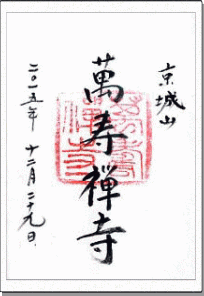 京城山
萬寿禅寺
二〇一五年 十二月二十九日